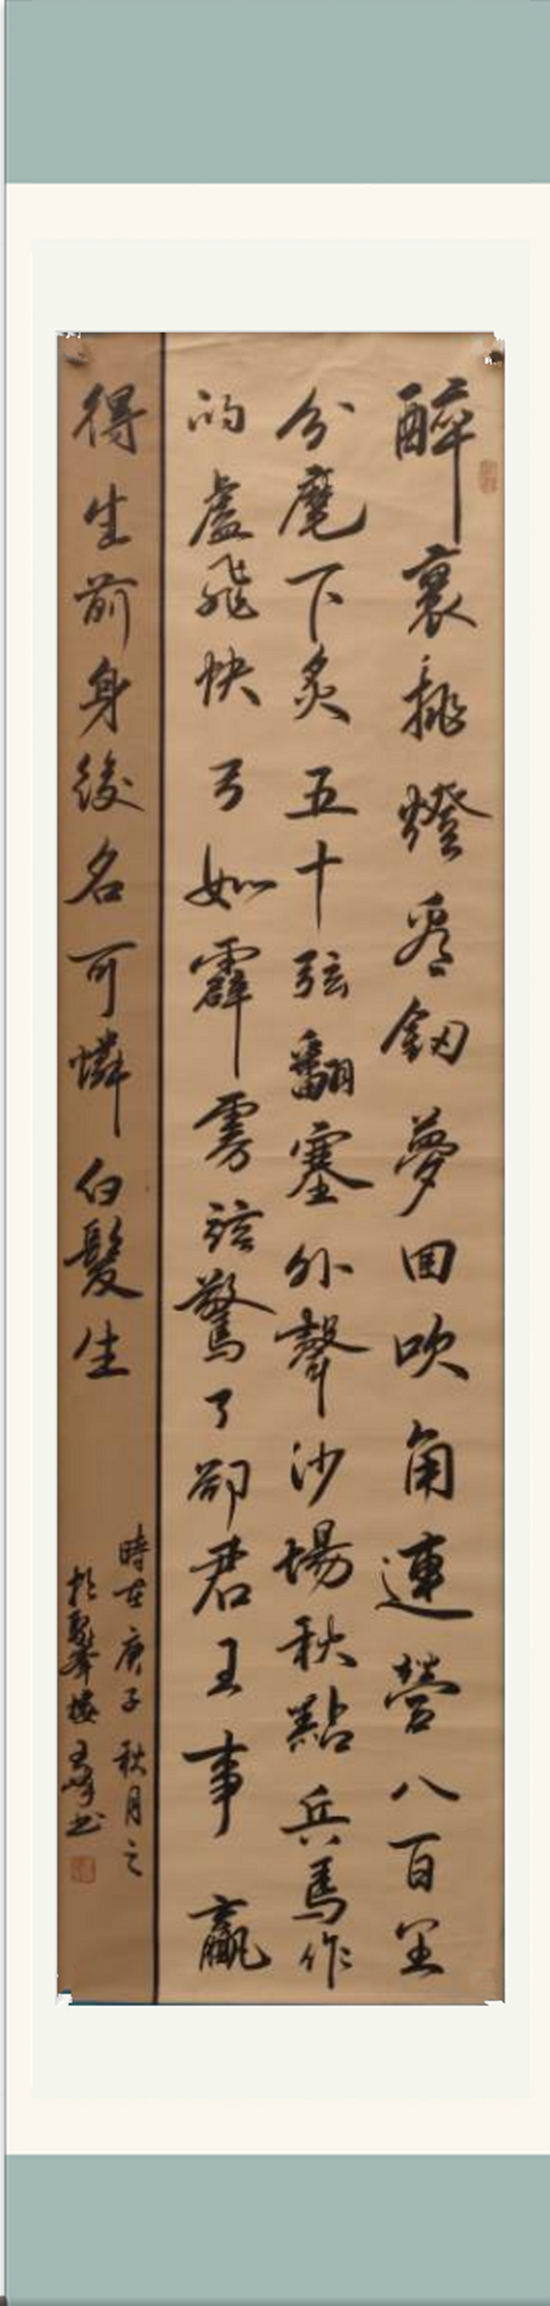 醉裏挑燈看劒夢回吹角連營八百里
分麾下炙五十弦翻塞外聲沙場秋點兵馬作
的盧飛快弓如霹雳弦驚了卻君王事贏
得生前身後名可憐白髮生
時在庚子秋月之
於聚峯樓書